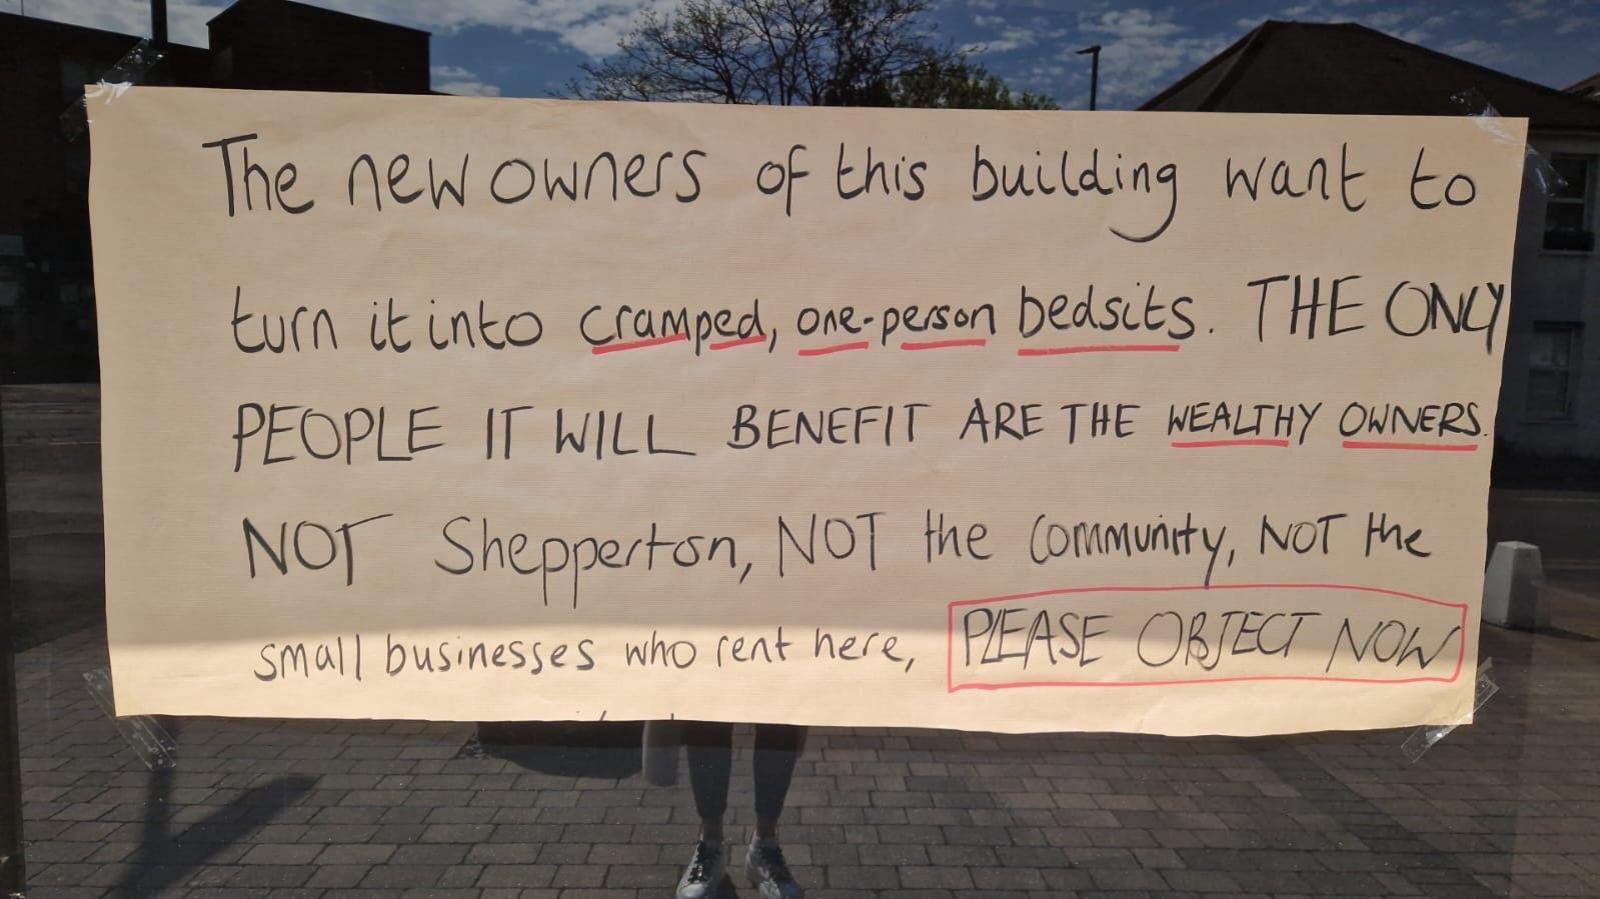 The new owners of this building want to
turn it into cramped, one-person bedsits. THE ONLY
PEOPLE IT WILL BENEFIT ARE THE WEALTHY OWNERS.
NOT Shepperton, NOT the community, NOT the
small businesses who rent here, PLEASE OBJECT NOW